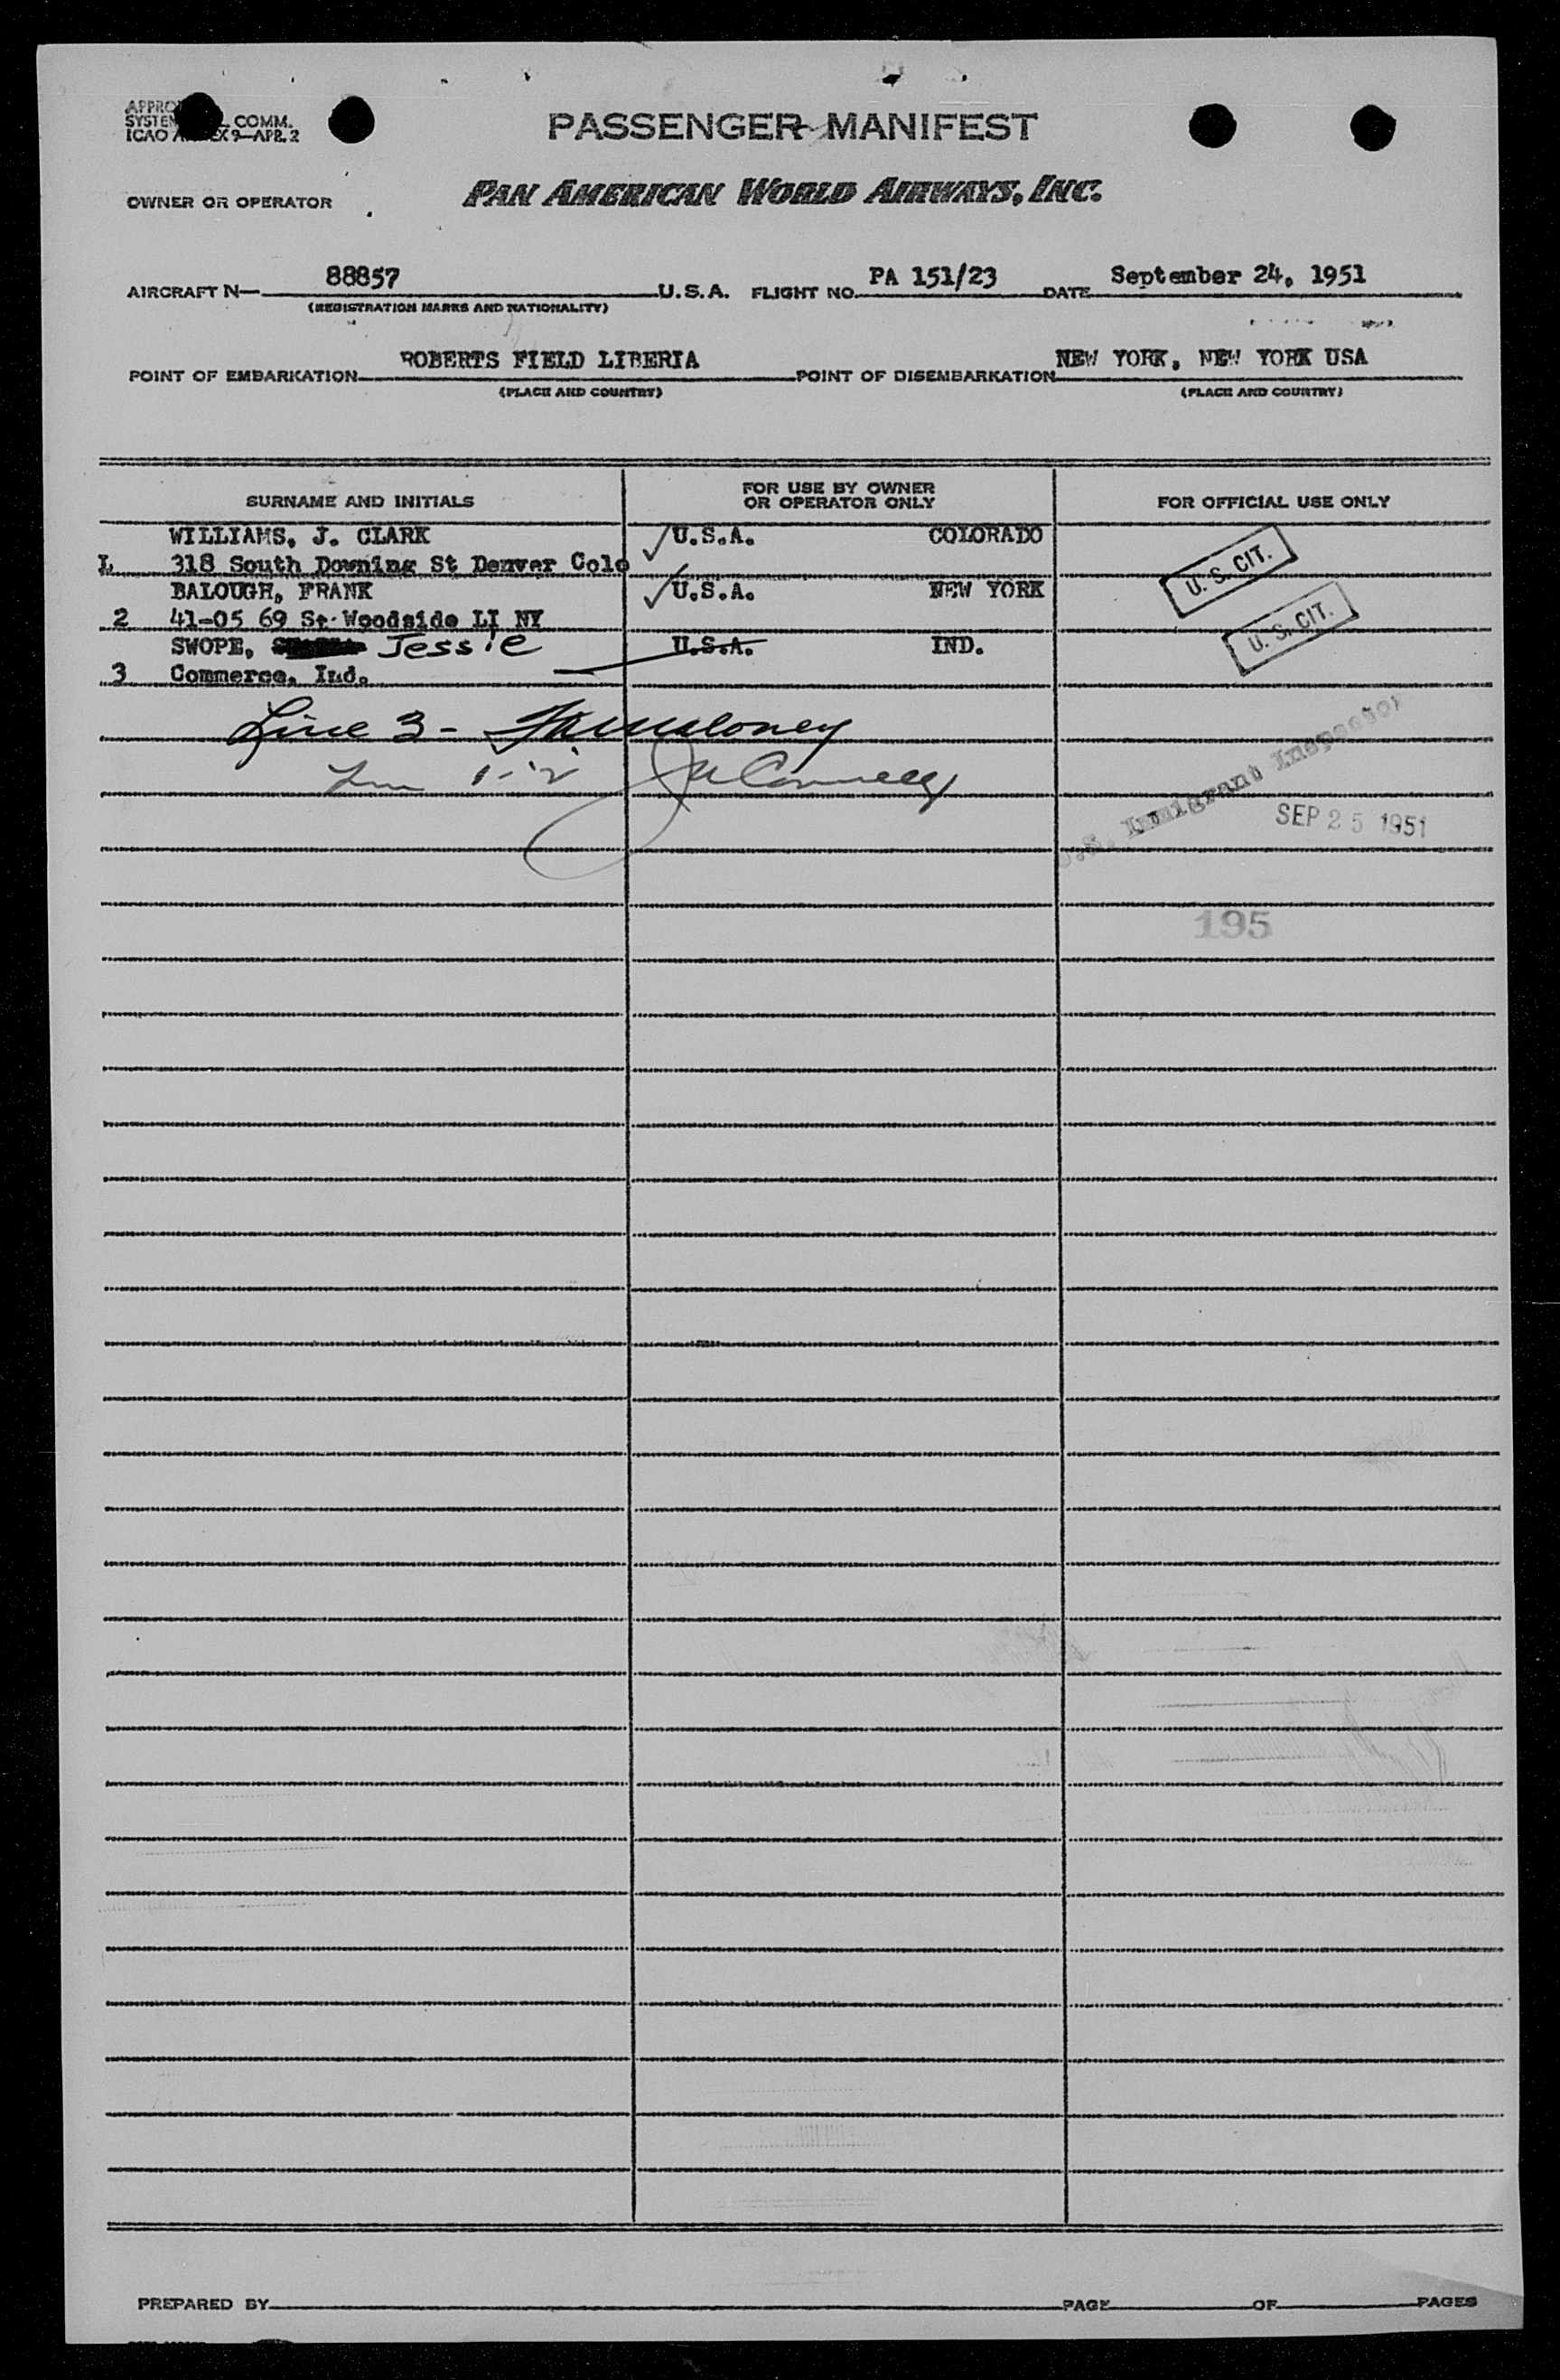 APPRO
SYSTEM L COMM.
ICAO ANNEX 9—APR. 2
PASSENGER MANIFEST
OWNER OR OPERATOR
PAN AMERICAN WORLD AIRWAYS, INC.
AIRCRAFT N— 88857 U.S.A. FLIGHT NO. PA 151/23 DATE September 24, 1951
(REGISTRATION MARKS AND NATIONALITY)
POINT OF EMBARKATION ROBERTS FIELD LIBERIA POINT OF DISEMBARKATION NEW YORK, NEW YORK USA
(PLACE AND COUNTRY) (PLACE AND COUNTRY)
SURNAME AND INITIALS FOR USE BY OWNER OR OPERATOR ONLY FOR OFFICIAL USE ONLY
WILLIAMS, J. CLARK U.S.A. COLORADO U. S. CIT.
L 318 South Downing St Denver Colo
BALOUGH, FRANK U.S.A. NEW YORK U. S. CIT.
2 41-05 69 St Woodside LI NY
SWOPE, Jessie U.S.A. IND.
3 Commerce, Ind.
Line 3 -
1-2
U.S. Immigrant Inspector
SEP 25 1951
195
PREPARED BY PAGE OF PAGES